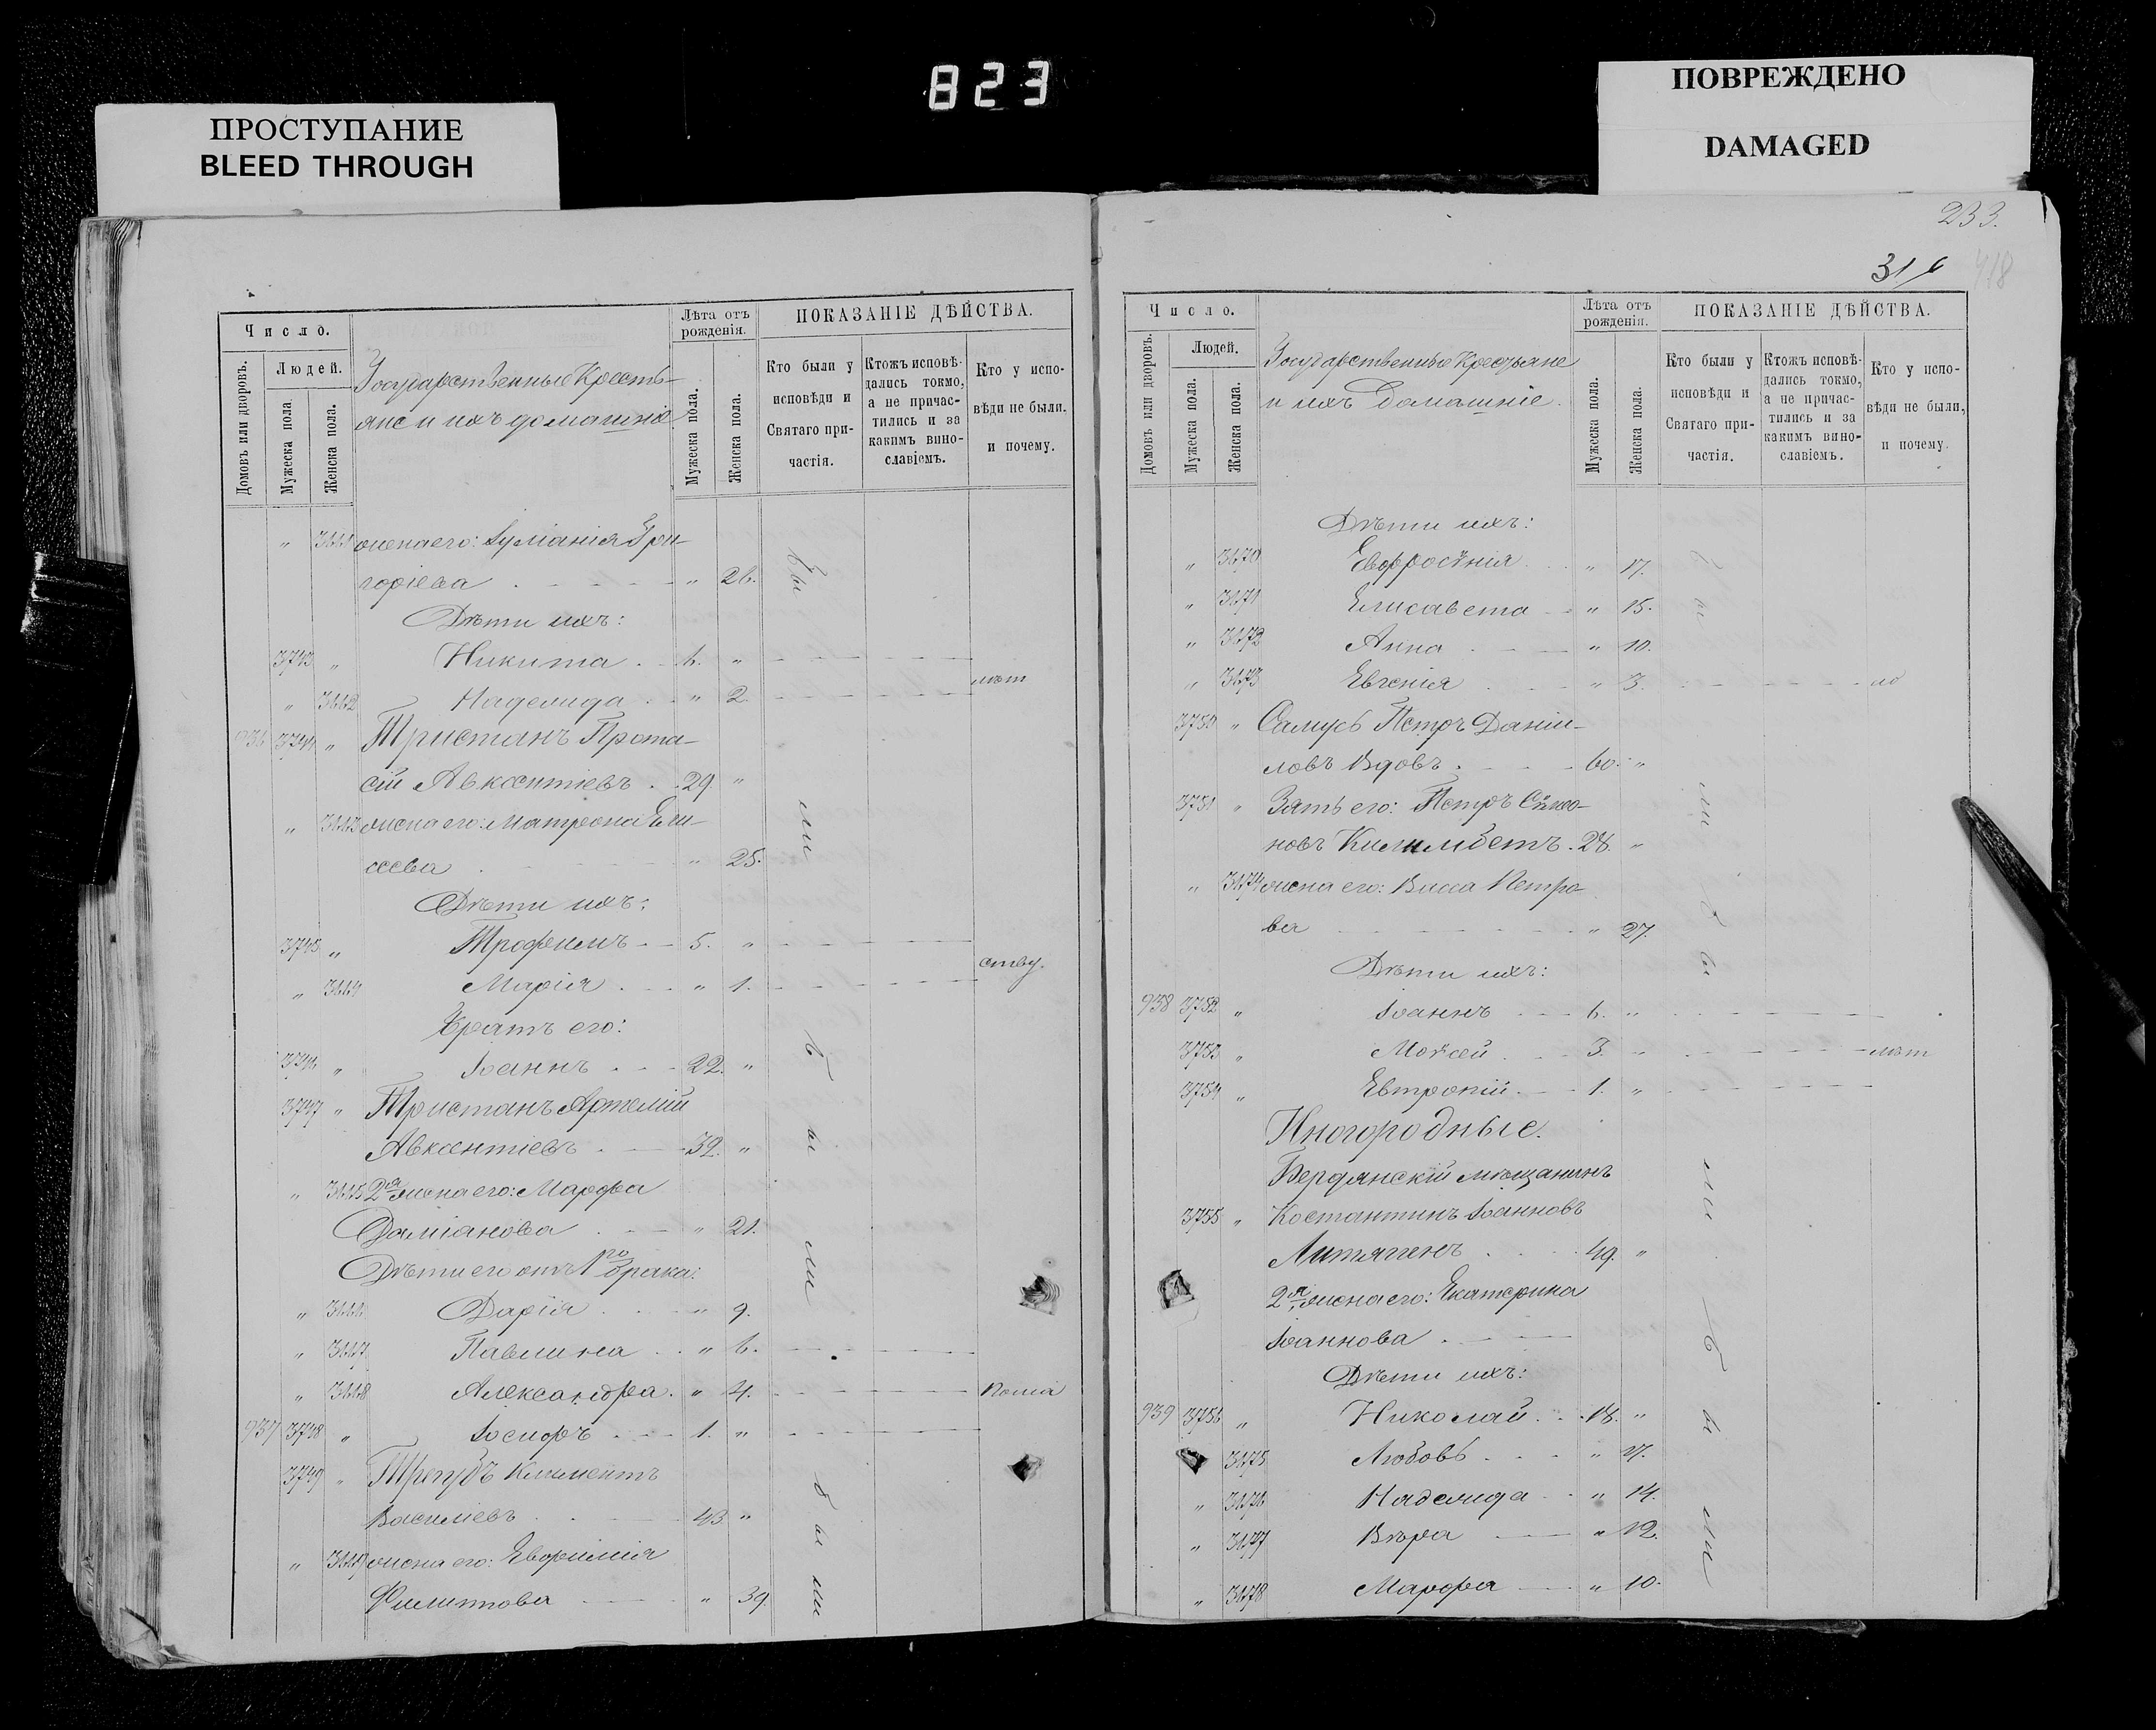 823
ПРОСТУПАНИЕ
BLEED THROUGH
ПОВРЕЖДЕНО
DAMAGED
Число.
Домовъ или дворовъ.
Людей.
Мужеска пола.
Женска пола.
Государственные Кресть-
яне и ихъ домашніе
Лѣта отъ рожденія.
Мужеска пола.
Женска пола.
ПОКАЗАНІЕ ДѢЙСТВА.
Кто были у исповѣди и Святаго при-частія.
Ктожъ исповѣ-дались токмо, а не причас-тились и за какимъ вино-славіемъ.
Кто у испо-вѣди не были. и почему.
" жена его: Іуліанія Гри-
горіева " 26.
Дѣти ихъ:
3743 " Никита 6. "
" Надежда " 2.
3744 " Тристанъ Прота-
сій Авксентіевъ 29. "
" жена его: Матрона Ели-
сеева " 25.
Дѣти ихъ:
3745 " Трофимъ 5. "
" Марія " 1.
ству.
Братъ его:
3746 " Іоаннъ 22. "
3747 " Тристанъ Артемій
Авксентіевъ 32. "
" 2я жена его: Марфа
Даміанова " 21.
Дѣти его отъ 1го брака:
" Дарія " 9.
" Павлина " 6.
" Александра " 4.
937 3748 " Іосифъ 1. "
3749 " Трегубъ Климентъ
Василіевъ 43 "
" жена его: Евфимія
Филиппова " 39
были
233.
316
418
Число.
Домовъ или дворовъ.
Людей.
Мужеска пола.
Женска пола.
Государственные Крестьяне
и ихъ домашніе.
Лѣта отъ рожденія.
Мужеска пола.
Женска пола.
ПОКАЗАНІЕ ДѢЙСТВА.
Кто были у исповѣди и Святаго при-частія.
Ктожъ исповѣ-дались токмо, а не причас-тились и за какимъ вино-славіемъ.
Кто у испо-вѣди не были, и почему.
Дѣти ихъ:
" 3670 Евфросѵнія " 17.
" 3671 Елисавета " 15.
" 3672 Анна " 10.
" 3673 Евгенія " 3.
3750 " Самусь Петръ Даніи-
ловъ Вдовъ 60. "
3751 " Зять его: Петръ Сѵмо-
новъ 28. "
" 3674 жена его: Васса Петро-
ва " 27.
Дѣти ихъ:
938 3752 " Іоаннъ 6. "
3753 " Моѵсей 3. "
3754 " Евтропій 1. "
Иногородные.
Бердянскій мѣщанинъ
3755 " Костантинъ Іоанновъ
49. "
2я жена его: Екатерина
Іоаннова
Дѣти ихъ:
939 3756 " Николай 18. "
3675 Любовь "
" 3676 Надежда " 14.
" 3677 Вѣра " 12.
" 3678 Марфа " 10.
были